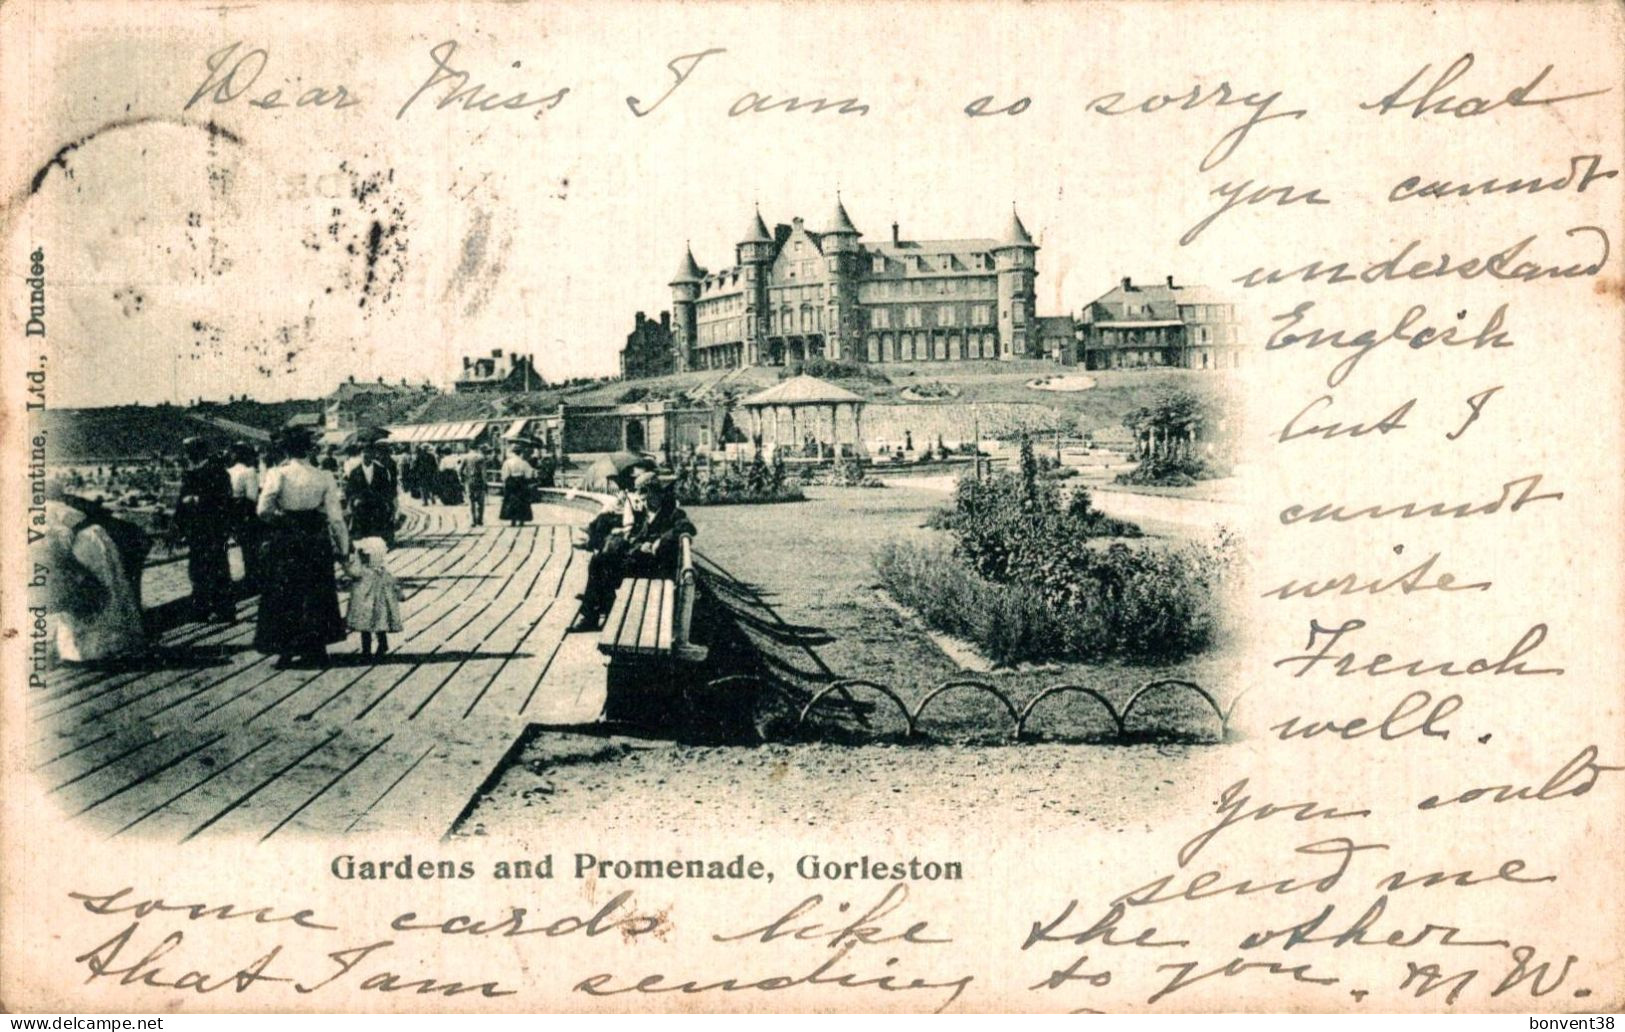 Dear Miss I am so sorry that
you cannot
understand
English
but I
cannot
write
French
well.
You could
send me
some cards like the other
that I am sending to you. M W.
Gardens and Promenade, Gorleston
Printed by Valentine, Ltd., Dundee.
delcampe.net
bonvent38